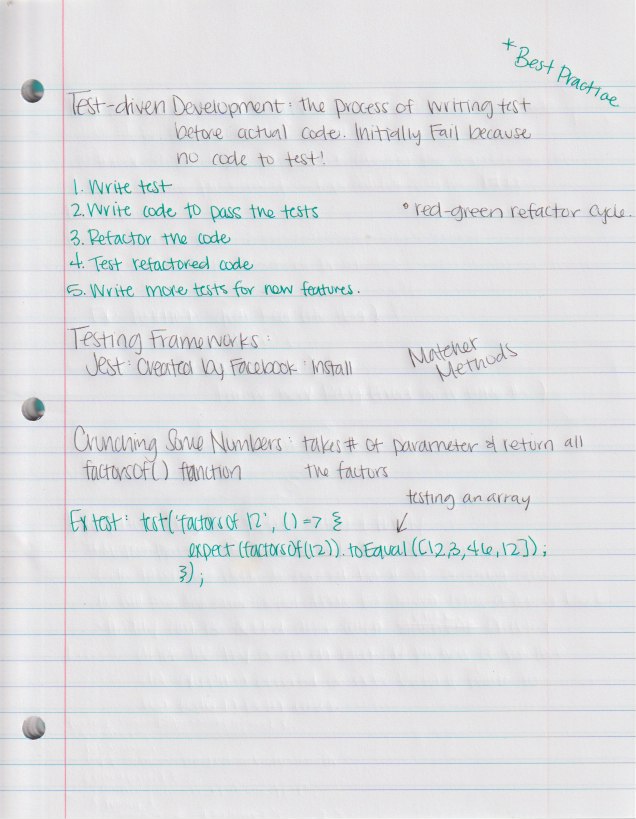 * Best Practice
Test-driven Development: the process of writing test
before actual code. Initially Fail because
no code to test!
1. Write test
2. Write code to pass the tests
• red-green refactor cycle.
3. Refactor the code
4. Test refactored code
5. Write more tests for new features.
Testing Frameworks:
Jest: Created by Facebook: Install
Matcher
Methods
Crunching Some Numbers: takes # of parameter & return all
factorsOf() function the factors
testing an array
Ex test: test('factors of 12', () => {
expect(factorsOf(12)).toEqual([12,3,46,12]);
});